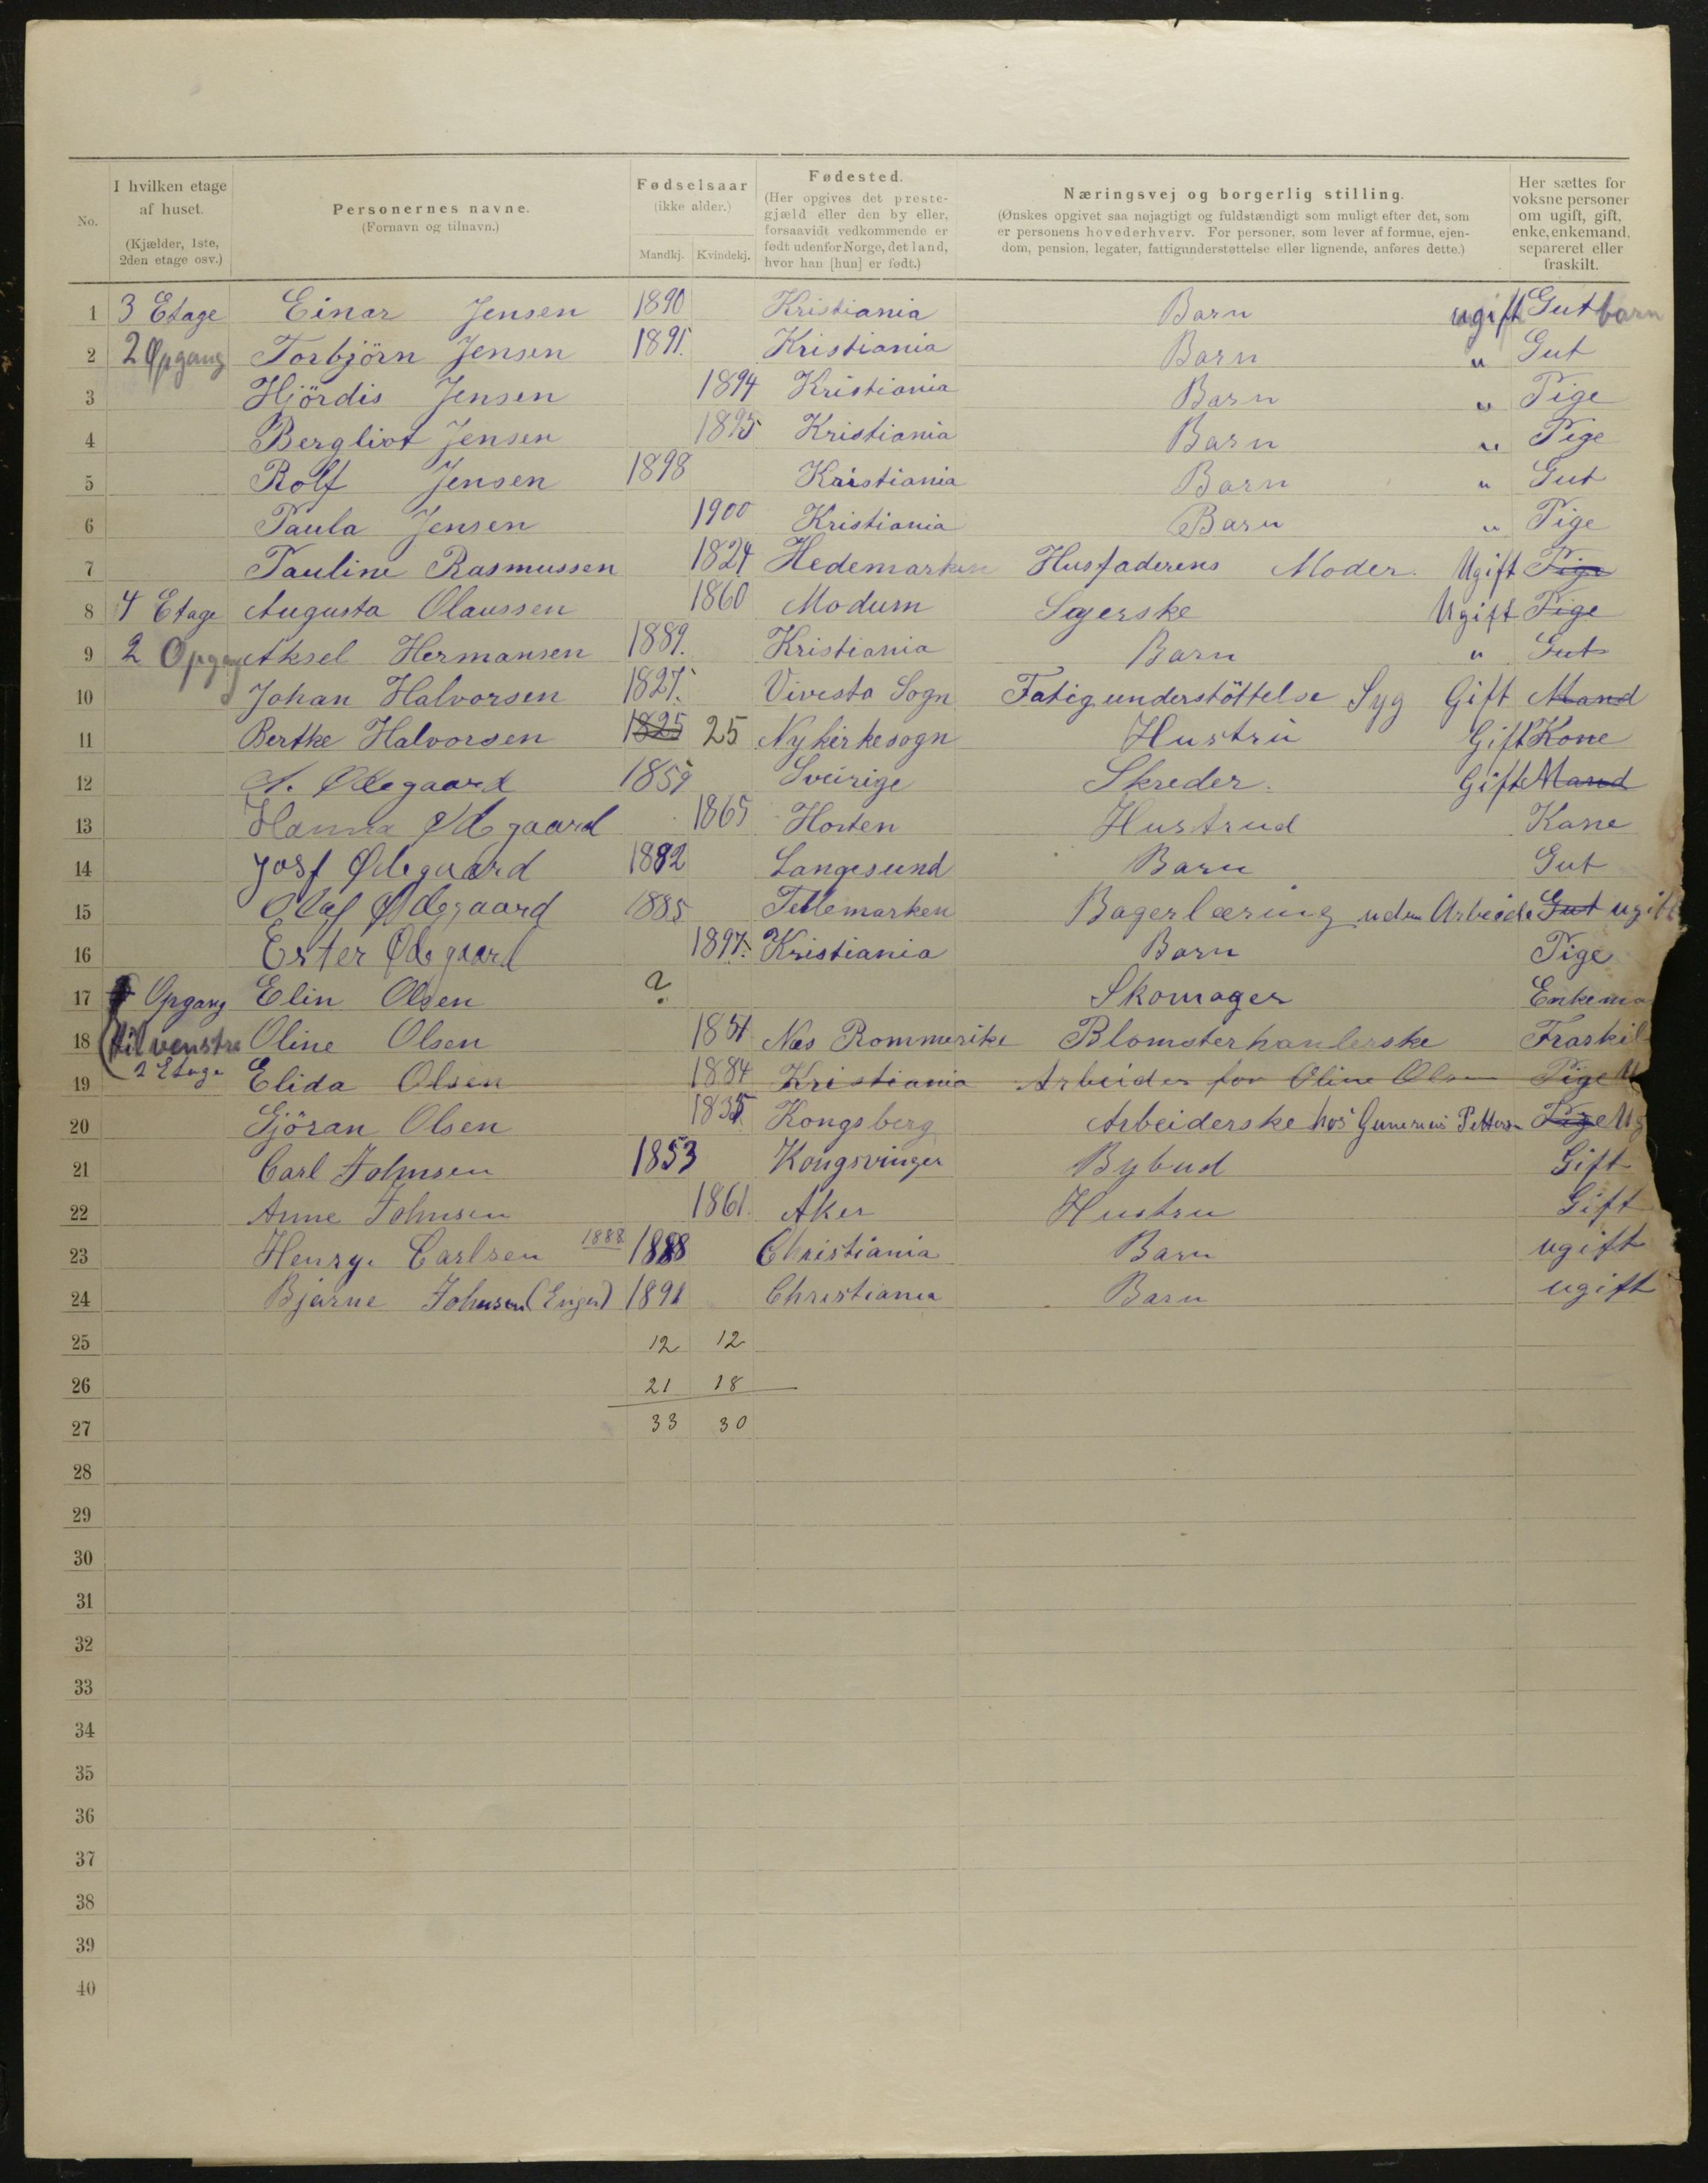 No.	I hvilken etage af huset. (Kjælder, 1ste, 2den etage osv.)	Personernes navne. (Fornavn og tilnavn.)	Fødselsaar (ikke alder.) Mandkj. Kvindekj.	Fødested. (Her opgives det prestegjæld eller den by eller, forsaavidt vedkommende er født udenfor Norge, det land, hvor han [hun] er født.)	Næringsvej og borgerlig stilling. (Ønskes opgivet saa nøjagtigt og fuldstændigt som muligt efter det, som er personens hovederhverv. For personer, som lever af formue, ejendom, pension, legater, fattigunderstøttelse eller lignende, anføres dette.)	Her sættes for voksne personer om ugift, gift, enke, enkemand, separeret eller fraskilt.
1 3 Etage Einar Jensen 1890 Kristiania Barn ugift Gut barn
2 2 Opgang Torbjörn Jensen 1891. Kristiania Barn " Gut
3 Hjördis Jensen 1894 Kristiania Barn " Pige
4 Bergliot Jensen 1895 Kristiania Barn " Pige
5 Rolf Jensen 1898 Kristiania Barn " Gut
6 Paula Jensen 1900 Kristiania Barn " Pige
7 Pauline Rasmussen 1824 Hedemarken Husfaderens Moder. Ugift Pige
8 4 Etage Augusta Olaussen 1860 Modum Syerske Ugift Pige
9 2 Opgang Aksel Hermansen 1889. Kristiania Barn " Gut
10 Johan Halvorsen 1827. Vivesta Sogn Fatigunderstöttelse Syg Gift Mand
11 Berthe Halvorsen 1825 25 Nykirkesogn Hustru Gift Kone
12 Ødegaard 1859 Sveirige Skreder. Gift Mand
13 Hanna Ødegaard 1865 Horten Hustrud Kane
14 Josf Ødegaard 1882 Langesund Barn Gut
15 Olaf Ødegaard 1885 Tellemarken Bagerlæring uden Arbeide Gut ugift
16 Ester Ødegaard 1897. Kristiania Barn Pige
17 Opgang Elin Olsen ? Skomager Enkema
18 (til venstre Oline Olsen Nes Rommerike Blomsterhanlerske Fraskil
19 2 Etage Elida Olsen 1884 Kristiania Arbeider for Oline Olsen Pige U
20 Gjöran Olsen 1835 Kongsberg Arbeiderske hos Gunerius Petterson Pige Ug
21 Carl Johnsen 1853 Kongsvinger Bybud Gift
22 Anne Johnsen 1861. Aker Hustru Gift
23 Henry. Carlsen 1888 1888 Christiania Barn ugift
24 Bjarne Johnsen (Enger) 1891 Christiania Barn ugift
25 12 12
26 21 18
27 33 30
28
29
30
31
32
33
34
35
36
37
38
39
40